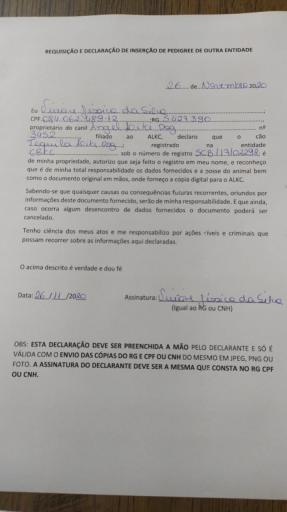 REQUISIÇÃO E DECLARAÇÃO DE INSERÇÃO DE PEDIGREE DE OUTRA ENTIDADE
26 de Novembro 2020
Eu Jéssica da Silva
CPF 084.062.489-12 ;RG 5427390
proprietário do canil Angel Dog nº
3452 filiado ao ALKC, declara que o cão
Tequila Dog registrado na entidade
CBKC sob o número de registro SCB/19/02298 é
de minha propriedade, autorizo que seja feito o registro em meu nome, e reconheço
que é de minha total responsabilidade os dados fornecidos e a posse do animal bem
como o documento original em mãos, onde forneço a copia digital para o ALKC.
Sabendo-se que quaisquer causas ou consequências futuras recorrentes, oriundos por
informações deste documento fornecido, serão de minha responsabilidade. E que ainda,
caso ocorra algum desencontro de dados fornecidos o documento poderá ser
cancelado.
Tenho ciência dos meus atos e me responsabilizo por ações cíveis e criminais que
possam recorrer sobre as informações aqui declaradas.
O acima descrito é verdade e dou fé
Data: 26/11/2020 Assinatura: Jéssica da Silva
(Igual ao RG ou CNH)
OBS: ESTA DECLARAÇÃO DEVE SER PREENCHIDA A MÃO PELO DECLARANTE E SÓ É
VÁLIDA COM O ENVIO DAS CÓPIAS DO RG E CPF OU CNH DO MESMO EM JPEG, PNG OU
FOTO. A ASSINATURA DO DECLARANTE DEVE SER A MESMA QUE CONSTA NO RG CPF
OU CNH.